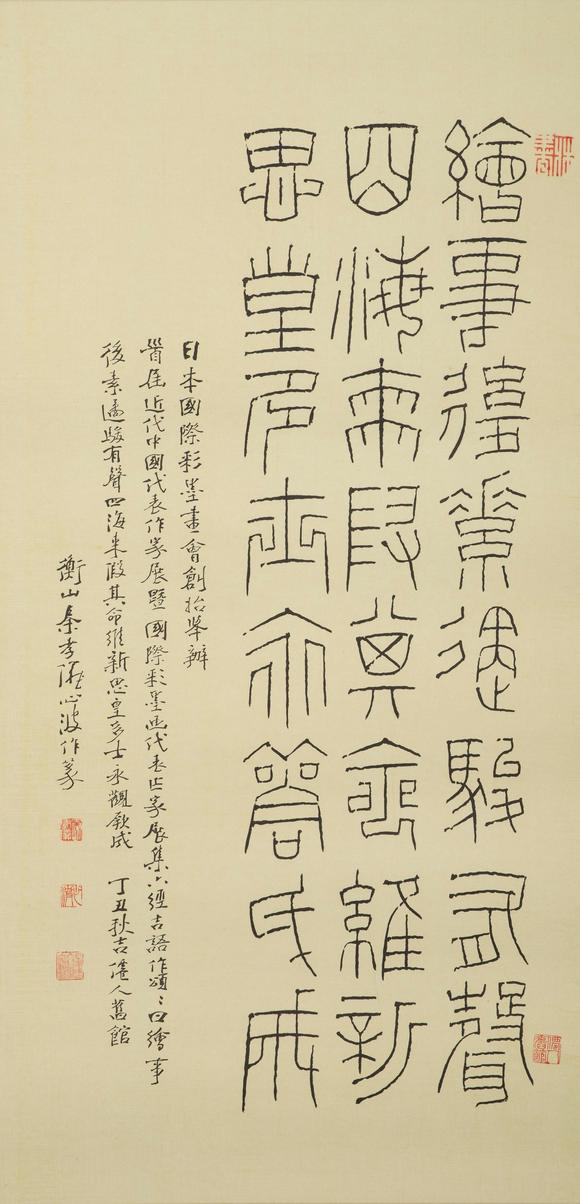 繪事後素遹駿有聲
四海來假其命維新
思皇多士永觀厥成
日本國際彩墨畫會創始舉辦
首屆近代中國代表作家展暨國際彩墨画代表作家展集六經吉語作頌〻曰繪事
後素遹駿有聲四海来假其命維新思皇多士永觀厥成 丁丑秋吉僊人舊館
衡山秦孝儀心波作篆